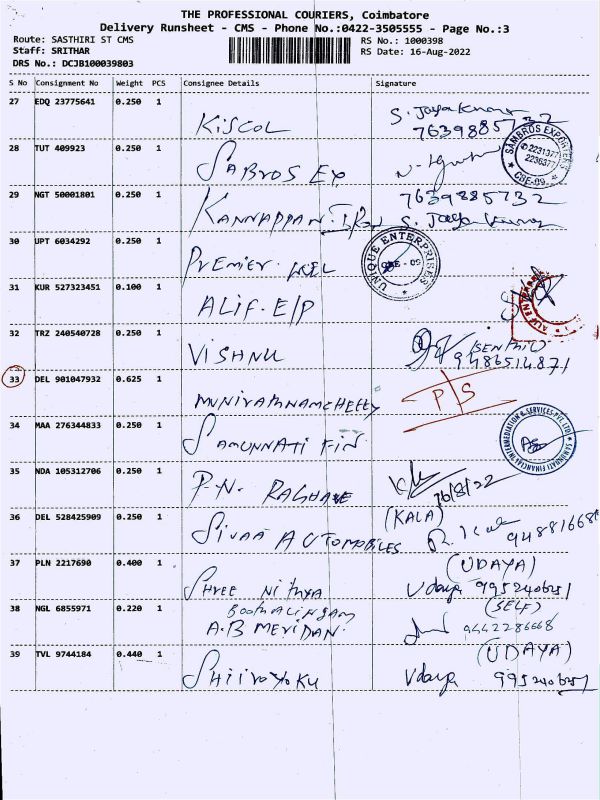 THE PROFESSIONAL COURIERS, Coimbatore
Delivery Runsheet - CMS - Phone No.:0422-3505555 - Page No.:3
Route: SASTHIRI ST CMS
Staff: SRITHAR
DRS No.: DCJB100039803
RS No.: 1000398
RS Date: 16-Aug-2022
S No Consignment No Weight PCS Consignee Details Signature
27 EDQ 23775641 0.250 1 KISCOL S. Jaya Kumar
7639885732
28 TUT 409923 0.250 1 SABROS EX
SAMBROS EXPORTERS
2231377
2236377
CBE-09
29 NGT 50001801 0.250 1 KANNAPPAN 7639885732
S. Jaya Kumar
30 UPT 6034292 0.250 1 PREMIER
UNIQUE ENTERPRISES
CBE - 09
31 KUR 527323451 0.100 1 ALIF. E/P
32 TRZ 240540728 0.250 1 VISHNU (SENTHIL)
9486514871
33 DEL 901047932 0.625 1 MUNIRATHNAMCHETTY P/S
34 MAA 276344833 0.250 1 SAMUNNATI FIN
SAMUNNATI FINANCIAL INTERMEDIATION & SERVICES PVT. LTD
35 NDA 105312706 0.250 1 P.N. RAGHAVE
16/8/22
36 DEL 528425909 0.250 1 SIVAA AUTOMOBILES (KALA)
37 PLN 2217690 0.400 1 SHREE NITHYA (UDAYA)
Udaya 9952406251
38 NGL 6855971 0.220 1 BOOTHALINGAM
A.B MERIDAN. (SELF)
9442286668
39 TVL 9744184 0.440 1 (UDAYA)
Udaya 9952406251